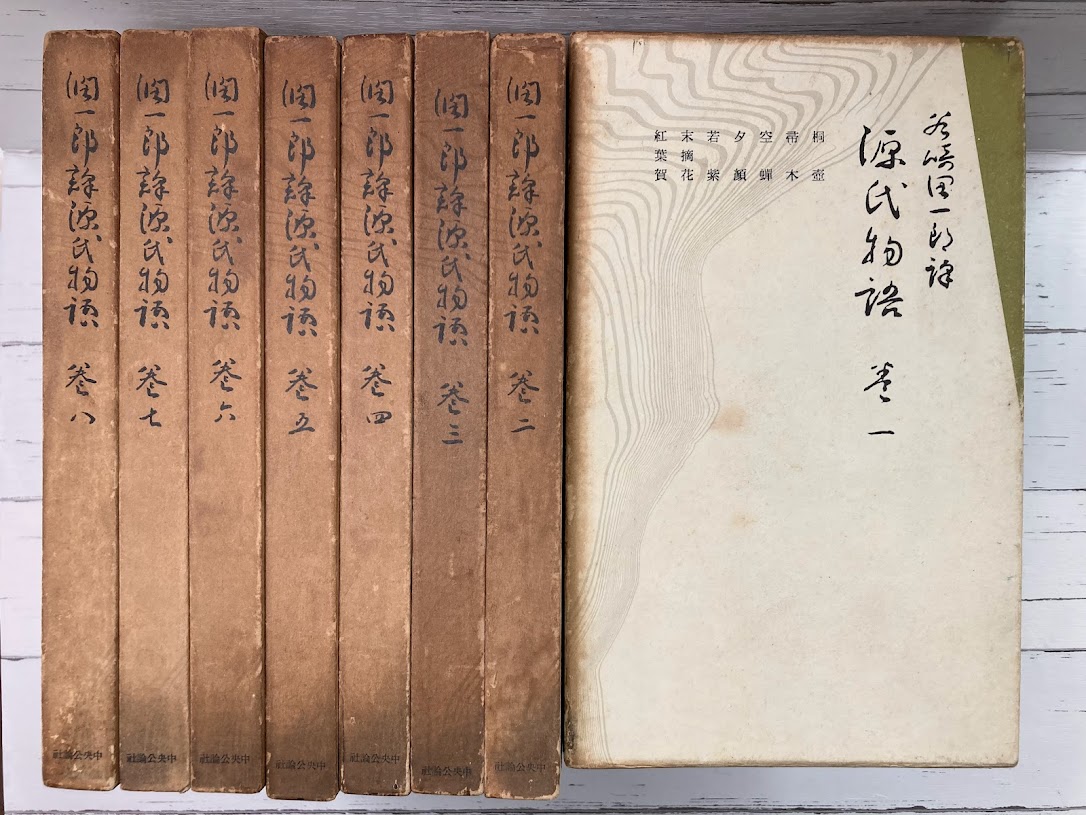 谷崎潤一郎譯
源氏物語 巻一
桐壺
帚木
空蟬
夕顏
若紫
末摘花
紅葉賀
潤一郎譯源氏物語 巻二
中央公論社
潤一郎譯源氏物語 巻三
中央公論社
潤一郎譯源氏物語 巻四
中央公論社
潤一郎譯源氏物語 巻五
中央公論社
潤一郎譯源氏物語 巻六
中央公論社
潤一郎譯源氏物語 巻七
中央公論社
潤一郎譯源氏物語 巻八
中央公論社